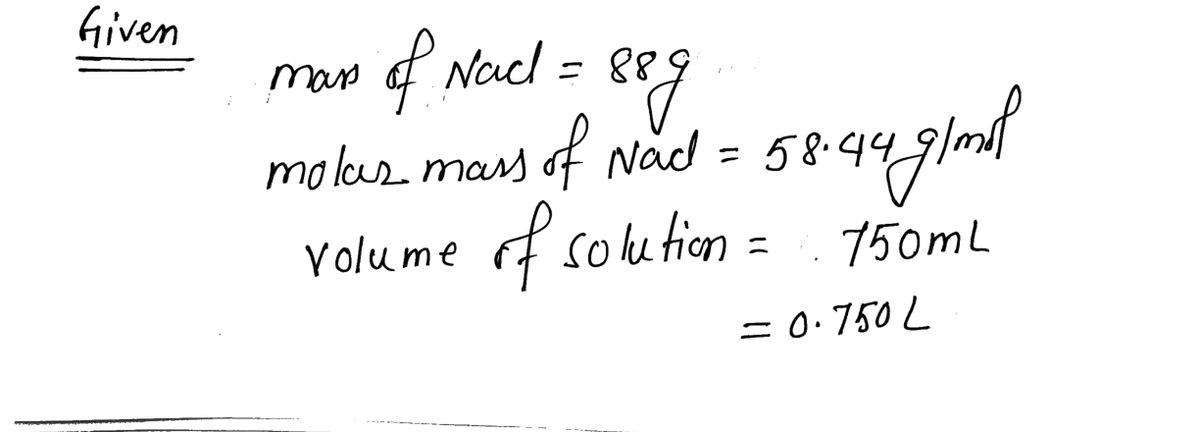 Given
mass of Nacl = 88g
molar mass of Nacl = 58.44 g/mol
volume of solution = 750mL
= 0.750 L